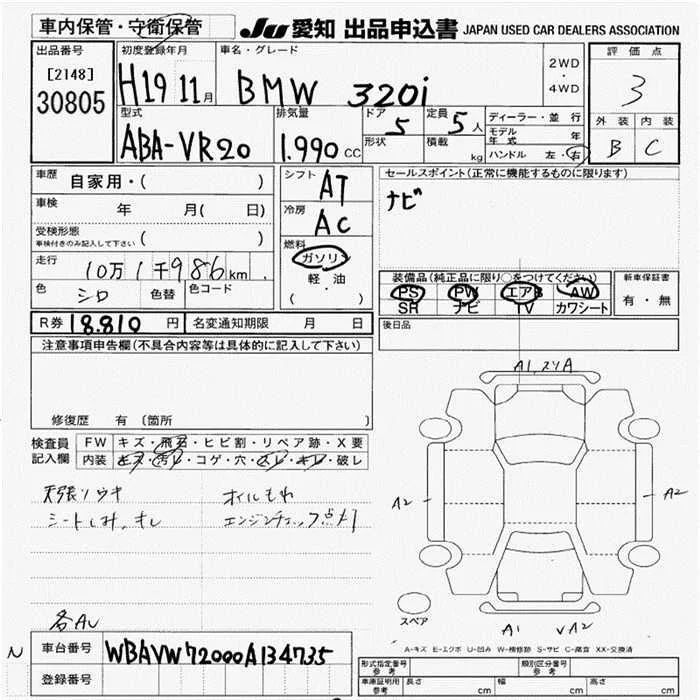 車内保管・守衛保管
JU 愛知 出品申込書 JAPAN USED CAR DEALERS ASSOCIATION
出品番号
[2148]
30805
初度登録年月
H19 11月
車名・グレード
BMW 320i
2WD
・
4WD
評価点
3
外装 内装
B C
型式
ABA-VR20
排気量
1.990 cc
ドア
5
形状
定員
5人
積載
kg
ディーラー・並行
モデル年式 年
ハンドル 左・右
車歴 自家用・( )
車検 年 月( 日)
受検形態
車検付きのみ記入して下さい ( )
走行 10万1千986km
色 シロ 色替 色コード
シフト
AT
冷房
AC
燃料
ガソリン
軽油
( )
セールスポイント(正常に機能するものに限ります)
ナビ
装備品(純正品に限り○をつけてください)
PS PW エアB AW
SR ナビ TV カワシート
新車保証書
有・無
R券 18.810 円 名変通知期限 月 日
後日品
注意事項申告欄(不具合内容等は具体的に記入して下さい)
修復歴 有 〔箇所 〕
検査員記入欄
FW キズ・飛石・ヒビ割・リペア跡・X要
内装 キズ・汚レ・コゲ・穴・スレ・キレ・破レ
天張りウキ オイルもれ
シートしみ、すし エンジンチェック点灯
A1,スリA
A2
A2
スペア
A1 VA2
A-キズ E-エクボ U-凹み W-補修跡 S-サビ C-腐食 XX-交換済
各AU
N
車台番号 WBAVW72000A134735
登録番号
型式指定番号 参考
類別区分番号 参考
車庫証明用 参考 長さ cm 幅 cm 高さ cm